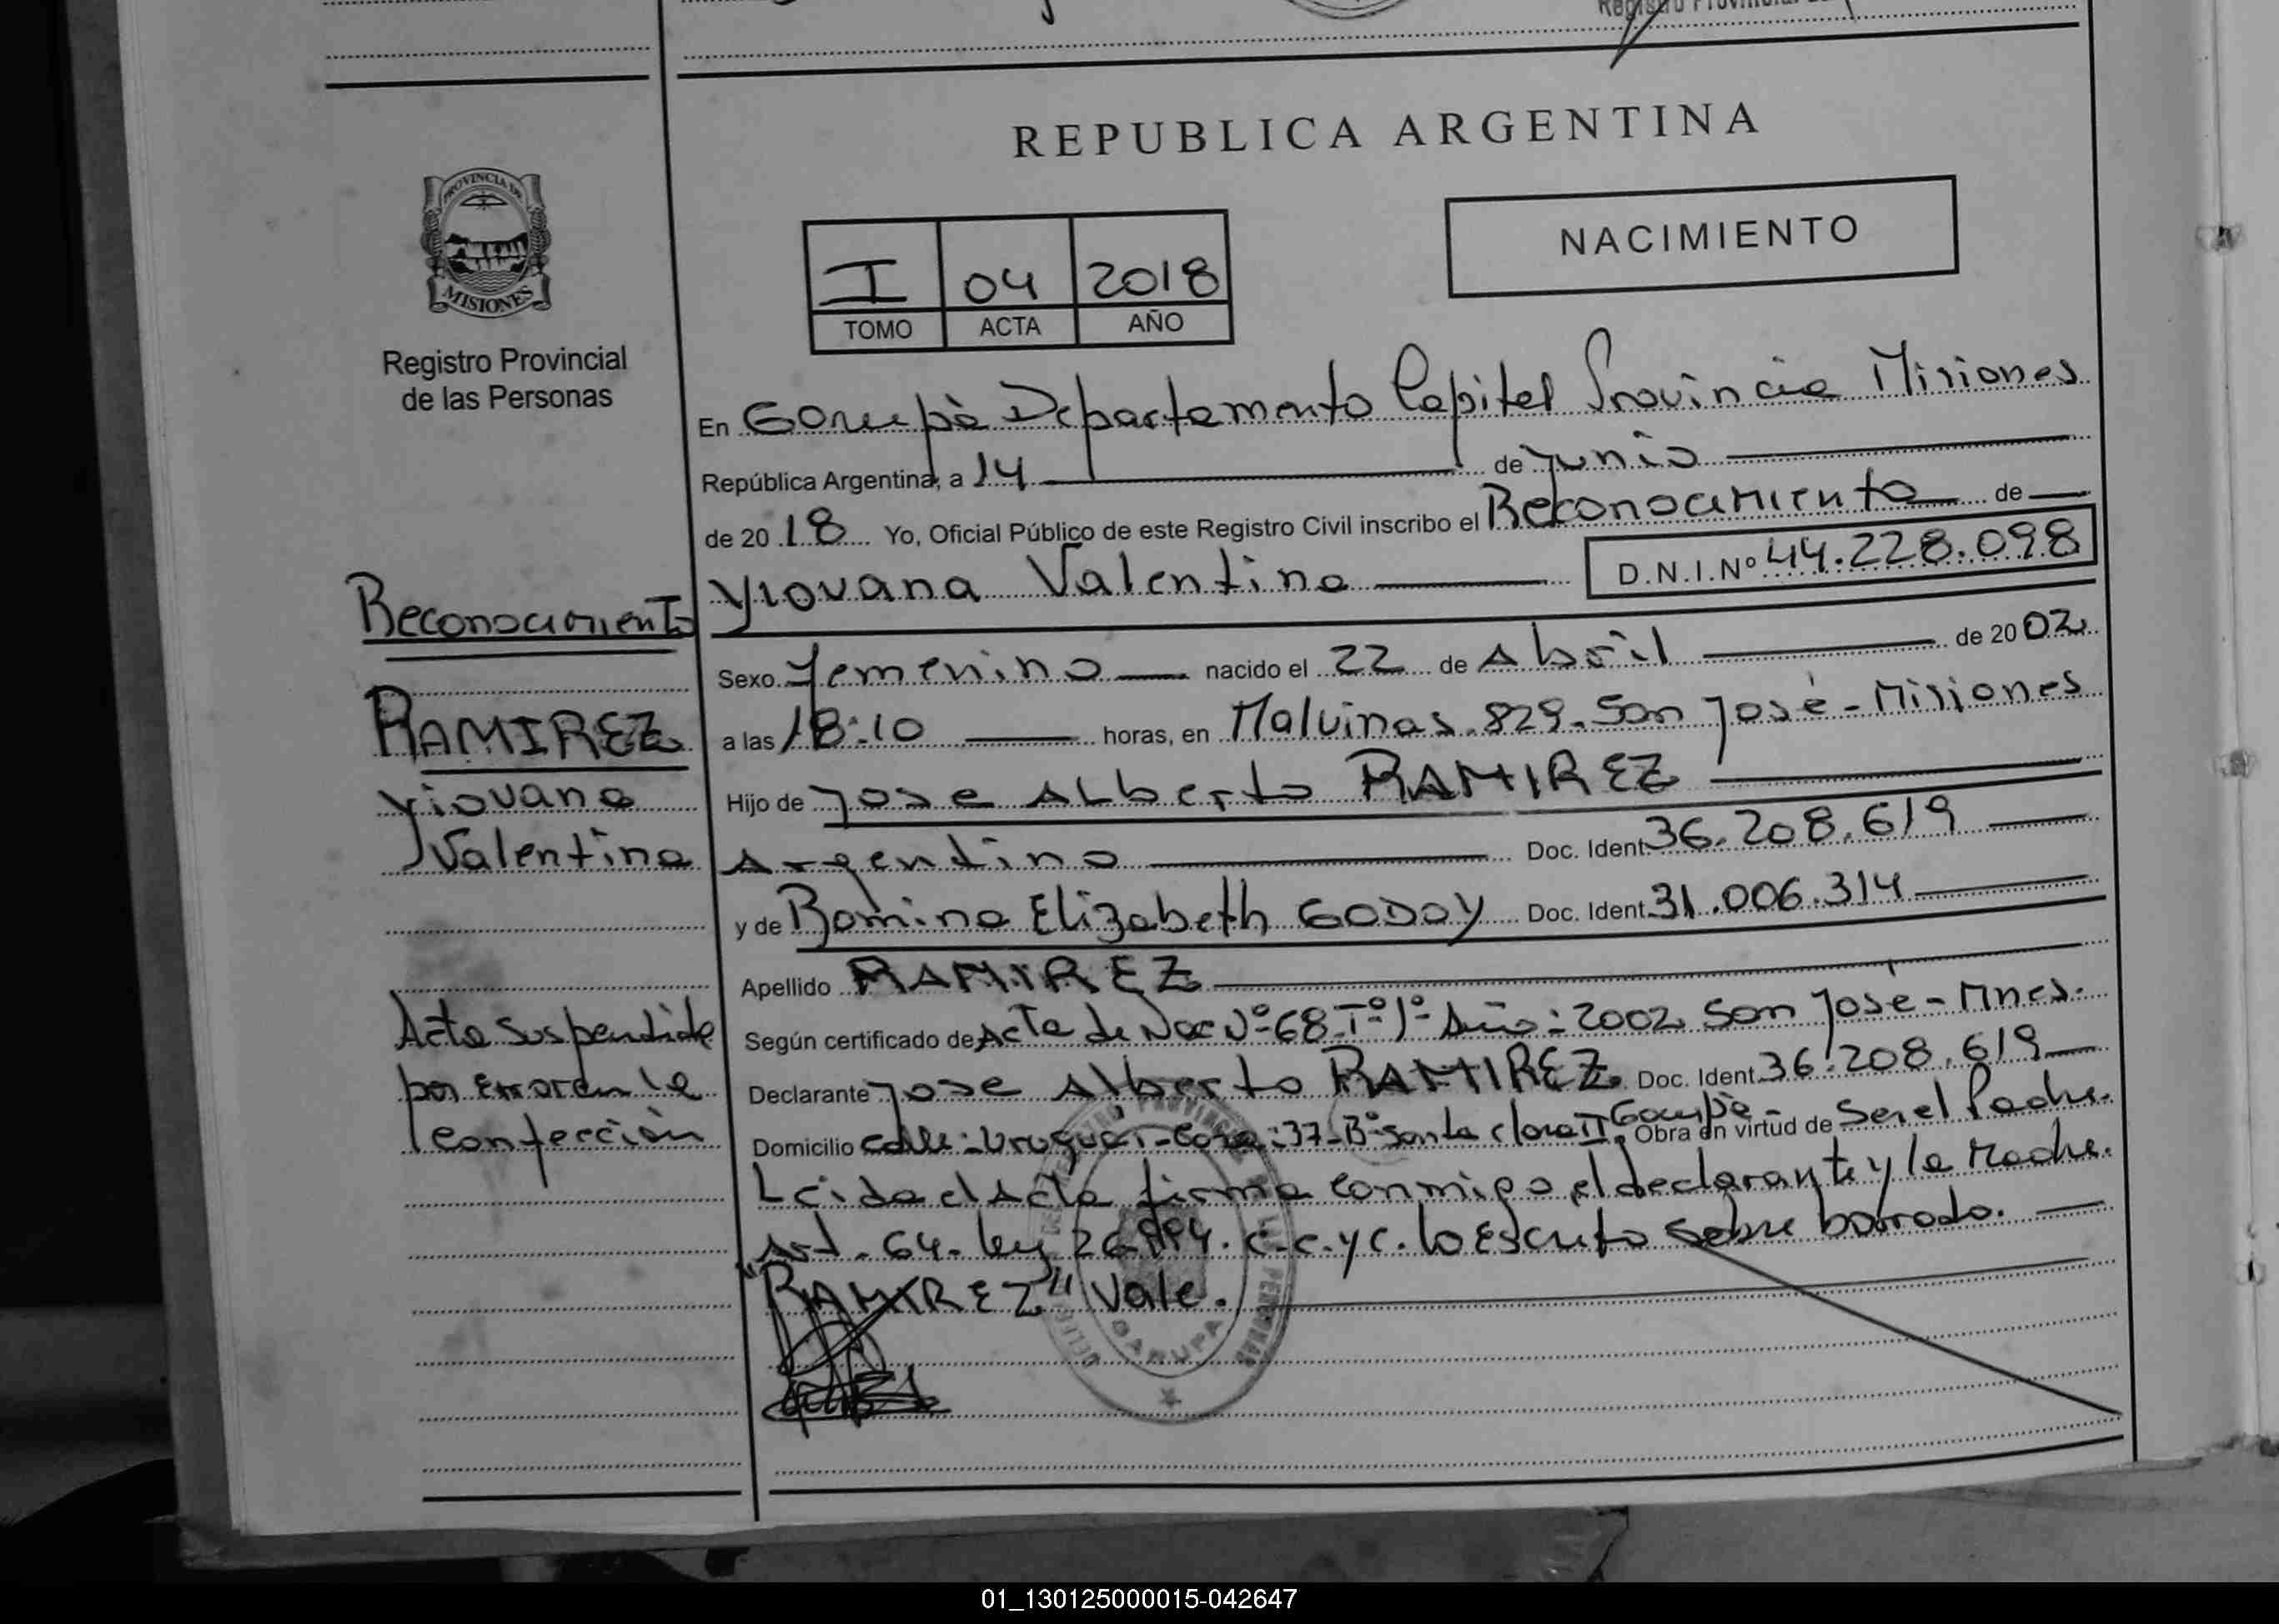 REPUBLICA ARGENTINA
PROVINCIA DE
MISIONES
Registro Provincial
de las Personas
NACIMIENTO
I 04 2018
TOMO ACTA AÑO
En Garupà Departamento Capital Provincia Misiones
República Argentina, a 14 de Junio
de 2018 Yo, Oficial Público de este Registro Civil inscribo el Reconocimiento de
Yiovana Valentina D.N.I.Nº 44.228.098
Sexo Femenino nacido el 22 de Abril de 2002
a las 18:10 horas, en Malvinas 829. San José - Misiones
Hijo de Jose Alberto RAMIREZ
Argentino Doc. Ident. 36.208.619
y de Romina Elizabeth GODOY Doc. Ident. 31.006.314
Apellido RAMIREZ
Según certificado de Acta de Nac Nº 68 Tº 1º Año: 2002 San José - Mnes.
Declarante Jose Alberto RAMIREZ. Doc. Ident. 36.208.619
Domicilio calle: Uruguai - Casa: 37 - Bº Santa Clara II Garupà - Obra en virtud de Ser el Padre.
Leida el Acta firma conmigo el declarante y la Madre.
Art. 64. ley 26.994. c.c.y c. lo Escrito sobre borrado.
"RAMIREZ" Vale.
Reconocimiento
RAMIREZ
Yiovana
Valentina
Acta Suspendida
por Error en la
Confección
GARUPA
01_130125000015-042647